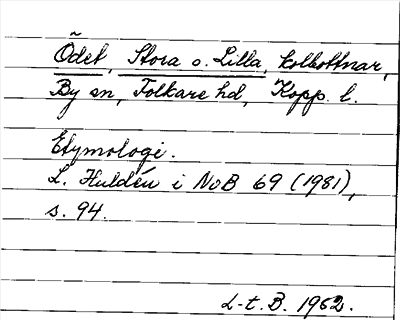 Ödet, Stora o. Lilla, kolbottnar,
By sn, Folkare hd, Kopp. l.
Etymologi.
L. Huldén i NoB 69 (1981),
s. 94.
L-t. B. 1962.